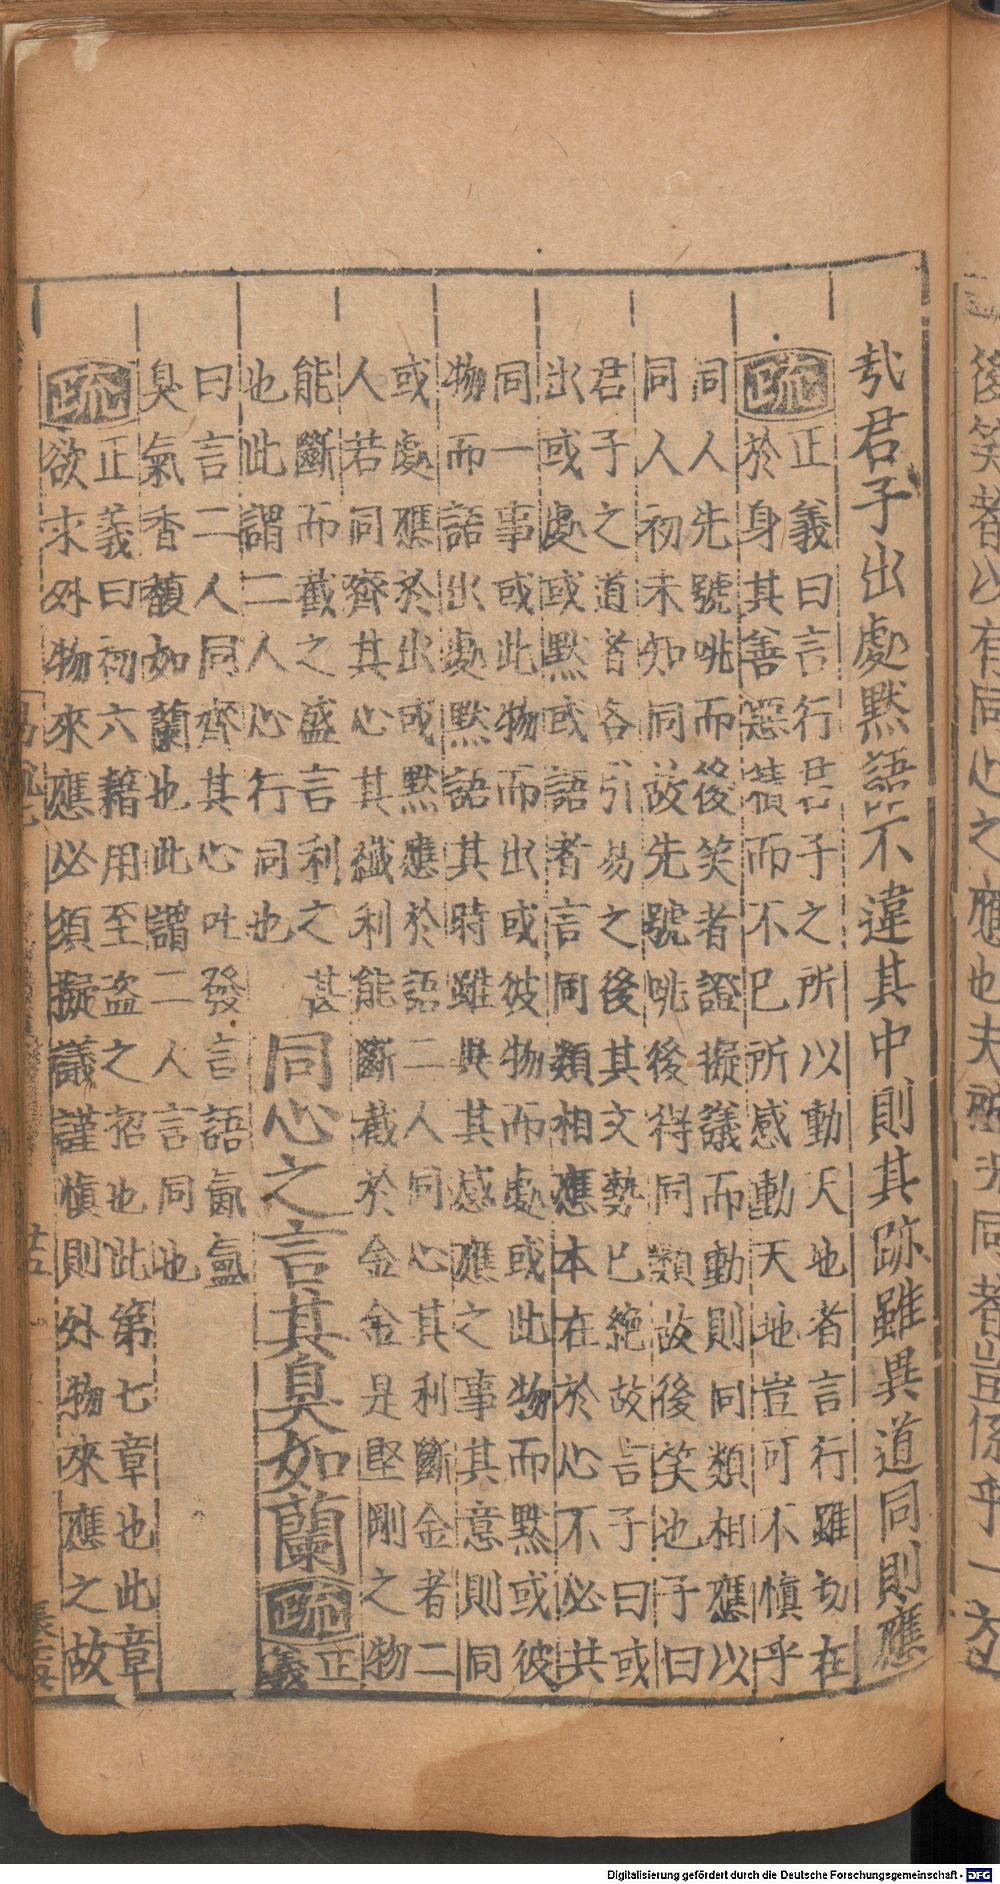 後笑者以有同心之應也夫所況同者豈係乎一
哉君子出處默語不違其中則其跡雖異道同則應
疏正義曰言行君子之所以動天地者言行雖切在
於身其善惡積而不已所感動天地豈可不慎乎
同人先號咷而後笑者證擬議而動則同類相應以
同人初未知同故先號咷後得同類故後笑也子曰
君子之道者各引易之後其文勢已絕故言子曰或
出或處或默或語者言同類相應本在於心不必共
同一事或此物而出或彼物而處或此物而默或彼
物而語出處默語其時雖異其感應之事其意則同
或處應於出或默應於語二人同心其利斷金者二
人若同齊其心其纖利能斷截於金金是堅剛之物
能斷而截之盛言利之甚
也此謂二人心行同也
同心之言其臭如蘭疏正義
曰言二人同齊其心吐發言語氤氳
臭氣香馥如蘭也此謂二人言同也
疏正義曰初六藉用至盜之招也此第七章也此章
欲求外物來應必須擬議謹慎則外物來應之故
Digitalisierung gefördert durch die Deutsche Forschungsgemeinschaft - DFG